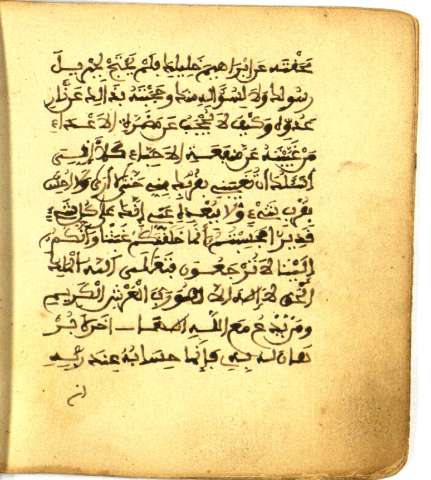 محقته عن ابراهيم خليلك فلم يحتج لجبريل
رسولك ولا لسؤاله منك وحجبته بذلك عن نار
عدوه وكيف لا يحجب عن مضرة الاعداء
من غيبته عن منفعة الاحباء كلا اني
اسئلك ان تغيبني بقربك مني حتى لا ارى ولا احس
بقرب شيء ولا ببعده عني انك على كل شيء
قدير افحسبتم انما خلقنكم عبثا وانكم
الينا لا ترجعون فتعلى الله الملك
الحق لا اله الا هو رب العرش الكريم
ومن يدع مع الله الاها اخر لا بر
هان له به فإنما حسابه عند ربه